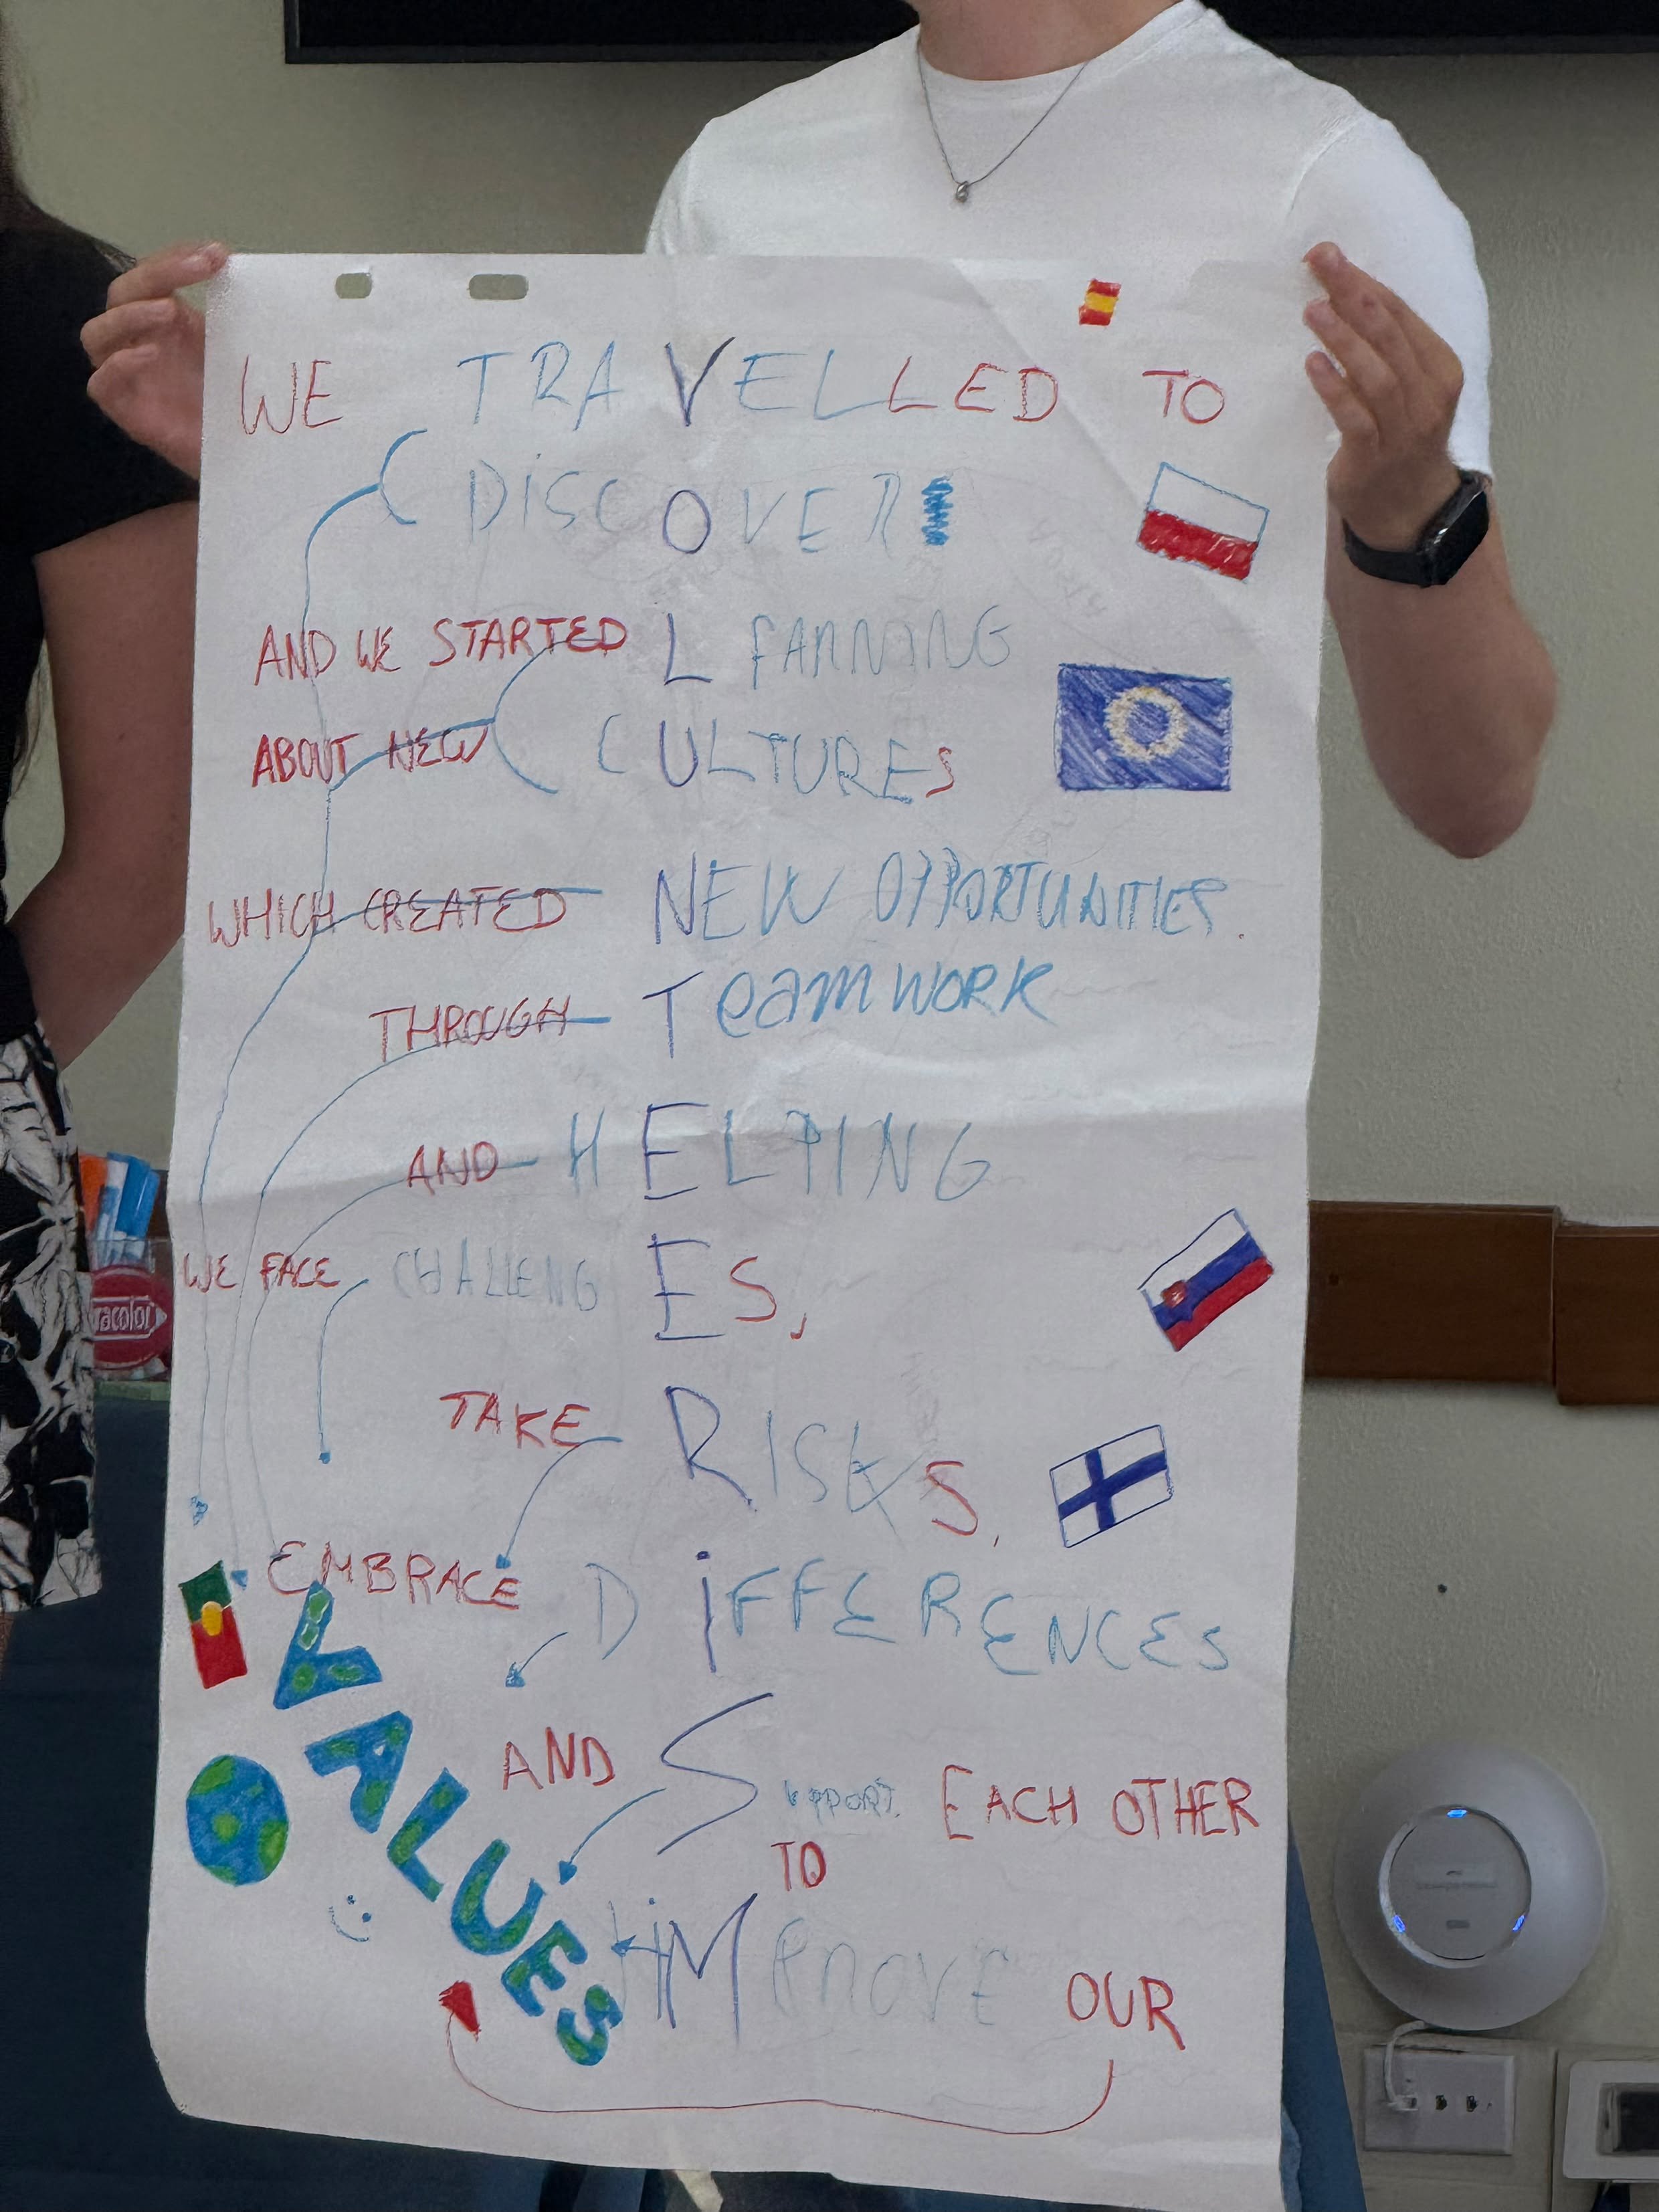 WE TRAVELLED TO
DiSCOVER
AND WE STARTED LEARNING
ABOUT NEW CULTURES
WHICH CREATED NEW OPPORTUNITIES.
THROUGH TEamWORK
AND HELPING
WE FACE CHALLENGES,
TAKE RISKS,
EMBRACE DiFFERENCES
AND SUPPORT EACH OTHER
TO
iMPROVE OUR
VALUES
racolor